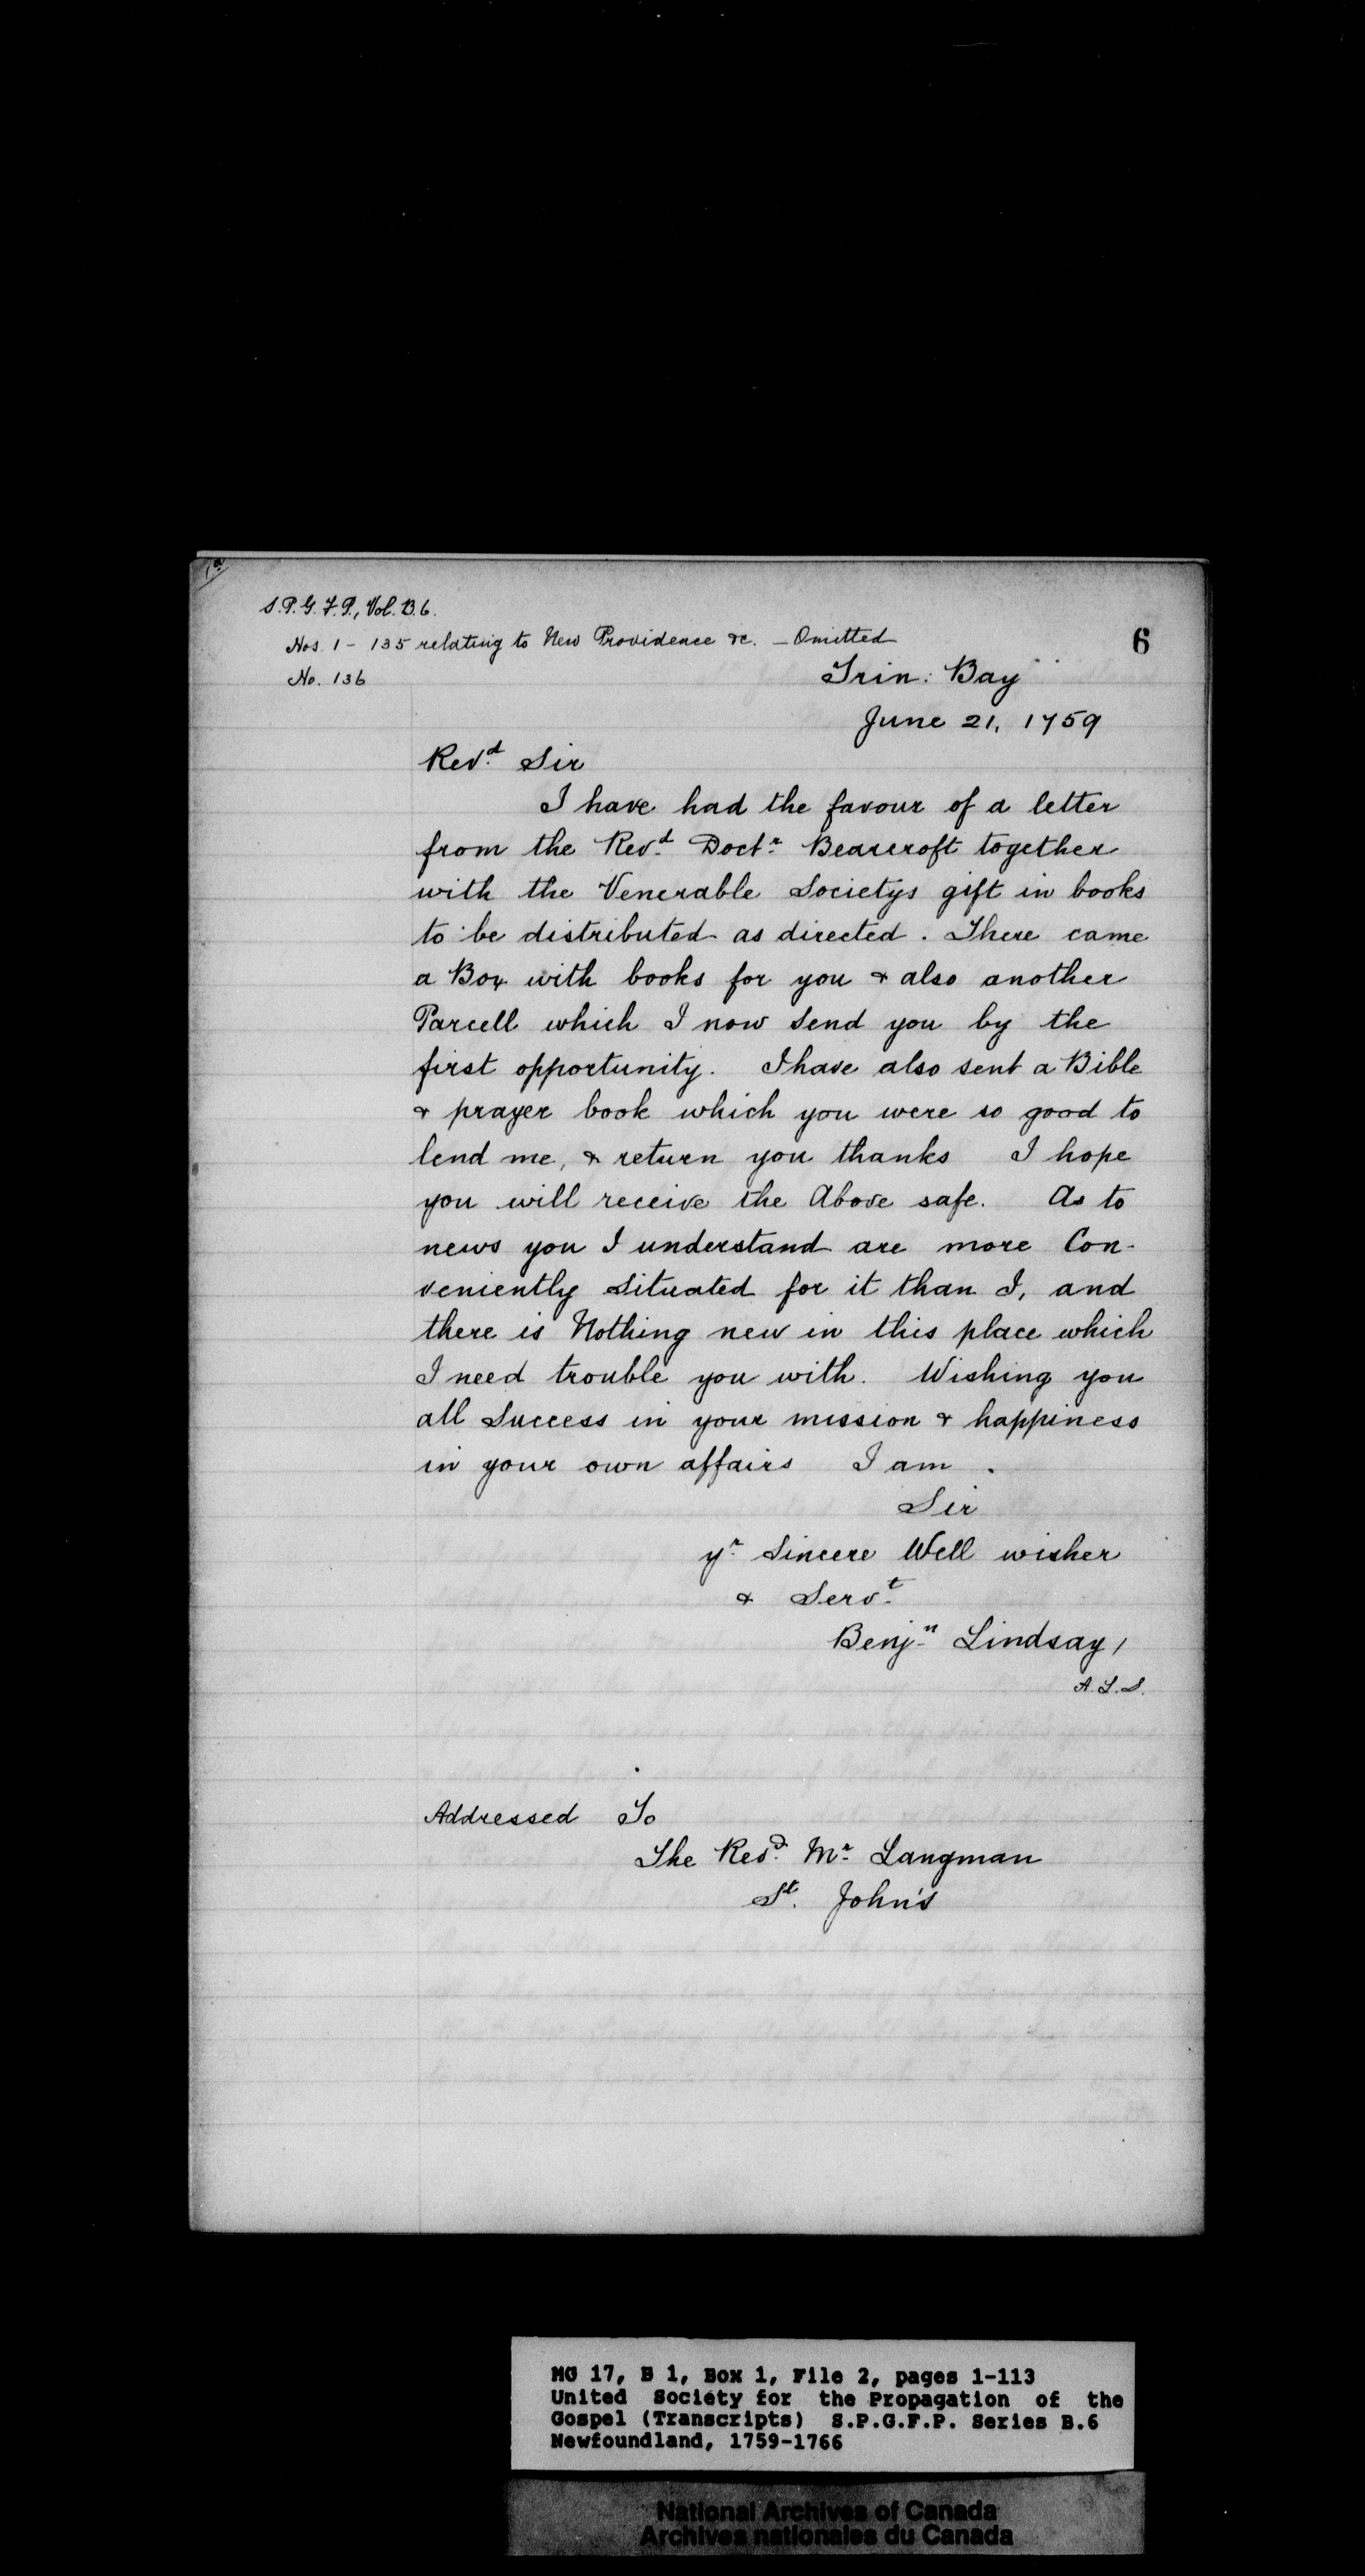 1a
S.P.G.F.P., Vol. B.6.
Nos. 1 - 135 relating to New Providence &c. - Omitted
6
No. 136
Trin: Bay
June 21, 1759
Revd. Sir
I have had the favour of a letter
from the Revd. Doctr. Bearcroft together
with the Venerable Societys gift in books
to be distributed as directed. There came
a Box with books for you & also another
Parcell which I now send you by the
first opportunity. I have also sent a Bible
& prayer book which you were so good to
lend me, & return you thanks I hope
you will receive the Above safe. As to
news you I understand are more Con-
veniently Situated for it than I, and
there is Nothing new in this place which
I need trouble you with. Wishing you
all Success in your mission & happiness
in your own affairs I am .
Sir
yr. Sincere Well wisher
& Servt.
Benjn. Lindsay /
A.L.S.
Addressed To
The Revd. Mr. Langman
St. John's
MG 17, B 1, Box 1, File 2, pages 1-113
United Society for the Propagation of the
Gospel (Transcripts) S.P.G.F.P. Series B.6
Newfoundland, 1759-1766
National Archives of Canada
Archives nationales du Canada